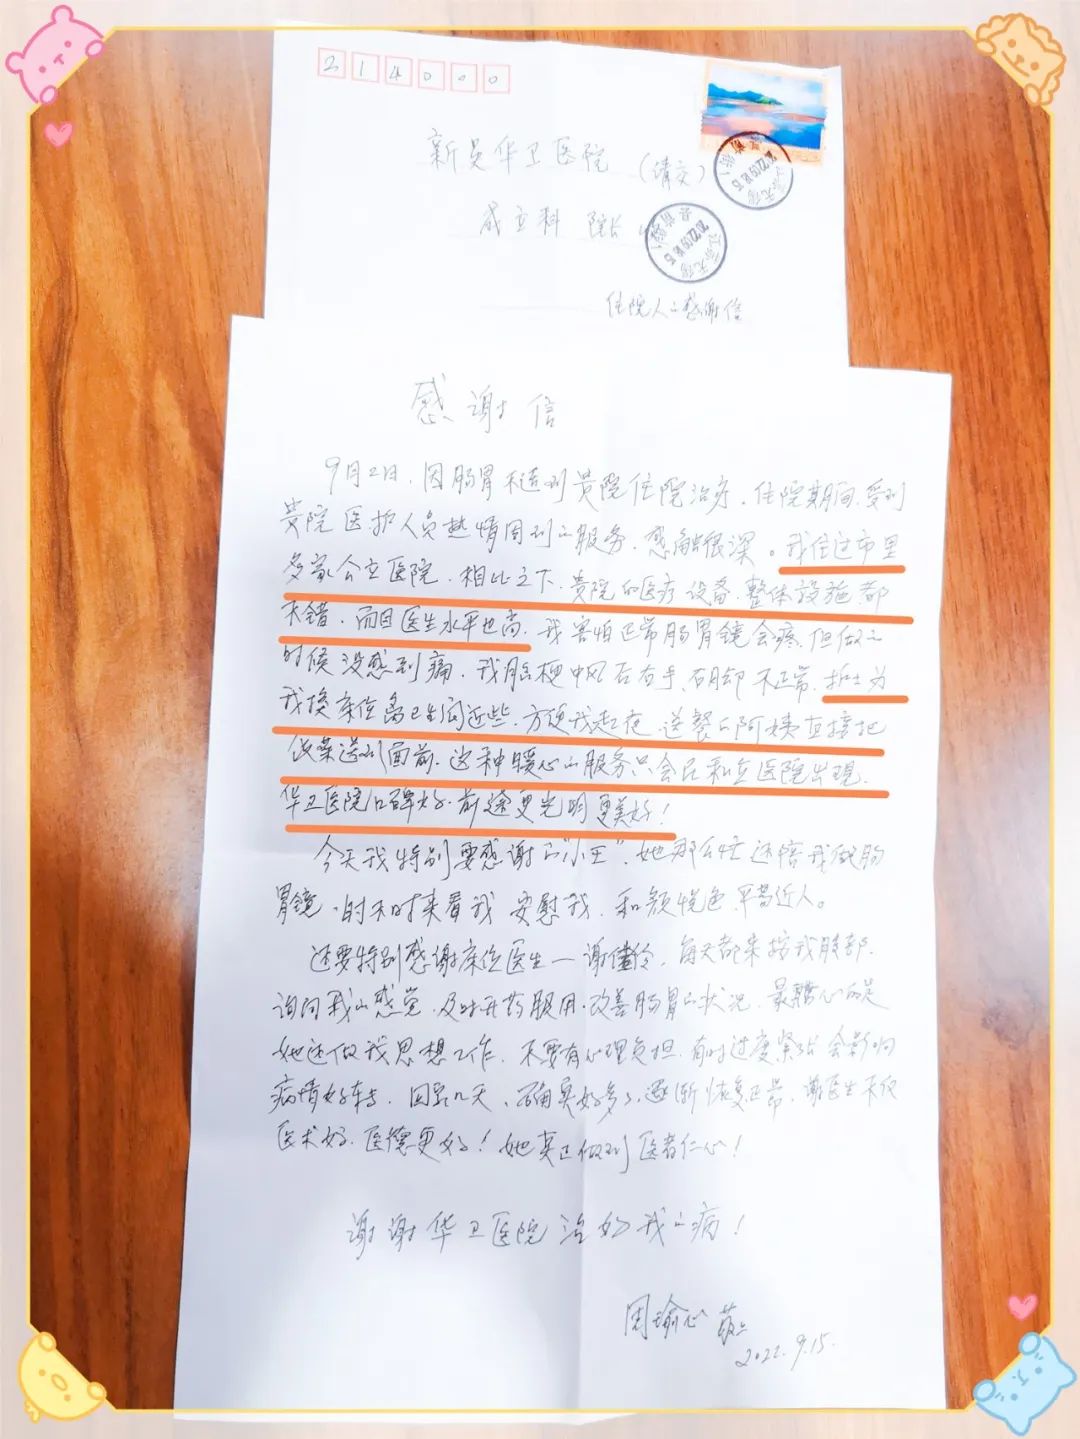 214000
新吴华卫医院（请交）
成立科 院长 收
江苏无锡
2022.09.16.15
江苏无锡
2022.09.16.15
住院人的感谢信
感谢信
9月2日，因肠胃不适到贵院住院治疗，住院期间，受到
贵院医护人员热情周到的服务，感触很深。我住过市里
多家公立医院，相比之下，贵院的医疗设备，整体设施都
不错，而且医生水平也高，我害怕正常肠胃镜会疼，但做的
时候没感到痛，我脑梗中风后右手，右脚不正常，护士为
我换床位离卫生间近些，方便我起夜，送餐的阿姨直接把
饭菜送到面前，这种暖心的服务只会在私立医院出现，
华卫医院口碑好，前途更光明更美好！
今天我特别要感谢的"小王"，她那么忙还陪我做肠
胃镜，时不时来看我 安慰我，和颜悦色，平易近人。
还要特别感谢床位医生—谢伶，每天都来按我腹部，
询问我的感觉，及时开药服用，改善肠胃的状况，最暖心的是
她还做我思想工作，不要有心理负担，有时过度紧张会影响
病情好转，因此几天，确实好多了，逐渐恢复正常，谢医生不仅
医术好，医德更好！她真正做到医者仁心！
谢谢华卫医院治好我的病！
周瑜心 敬上
2022.9.15.